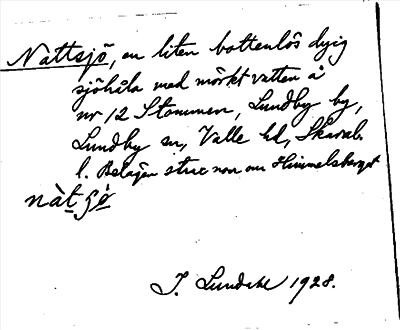 Nattsjö, en liten bottenlös dyig
sjöhåla med mörkt vatten å
nr 12 Stommen, Lundby by,
Lundby sn, Valle hd, Skarab.
l. Belägen strax nor om Himmelsberget
nàt ʃö̀
J. Lundahl 1928.